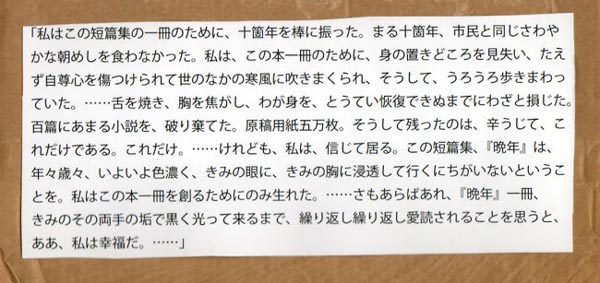 「私はこの短篇集の一冊のために、十箇年を棒に振った。まる十箇年、市民と同じさわや
かな朝めしを食わなかった。私は、この本一冊のために、身の置きどころを見失い、たえ
ず自尊心を傷つけられて世のなかの寒風に吹きまくられ、そうして、うろうろ歩きまわっ
ていた。……舌を焼き、胸を焦がし、わが身を、とうてい恢復できぬまでにわざと損じた。
百篇にあまる小説を、破り棄てた。原稿用紙五万枚。そうして残ったのは、辛うじて、こ
れだけである。これだけ。……けれども、私は、信じて居る。この短篇集、『晩年』は、
年々歳々、いよいよ色濃く、きみの眼に、きみの胸に浸透して行くにちがいないというこ
とを。私はこの本一冊を創るためにのみ生れた。……さもあらばあれ、『晩年』一冊、
きみのその両手の垢で黒く光って来るまで、繰り返し繰り返し愛読されることを思うと、
ああ、私は幸福だ。……」